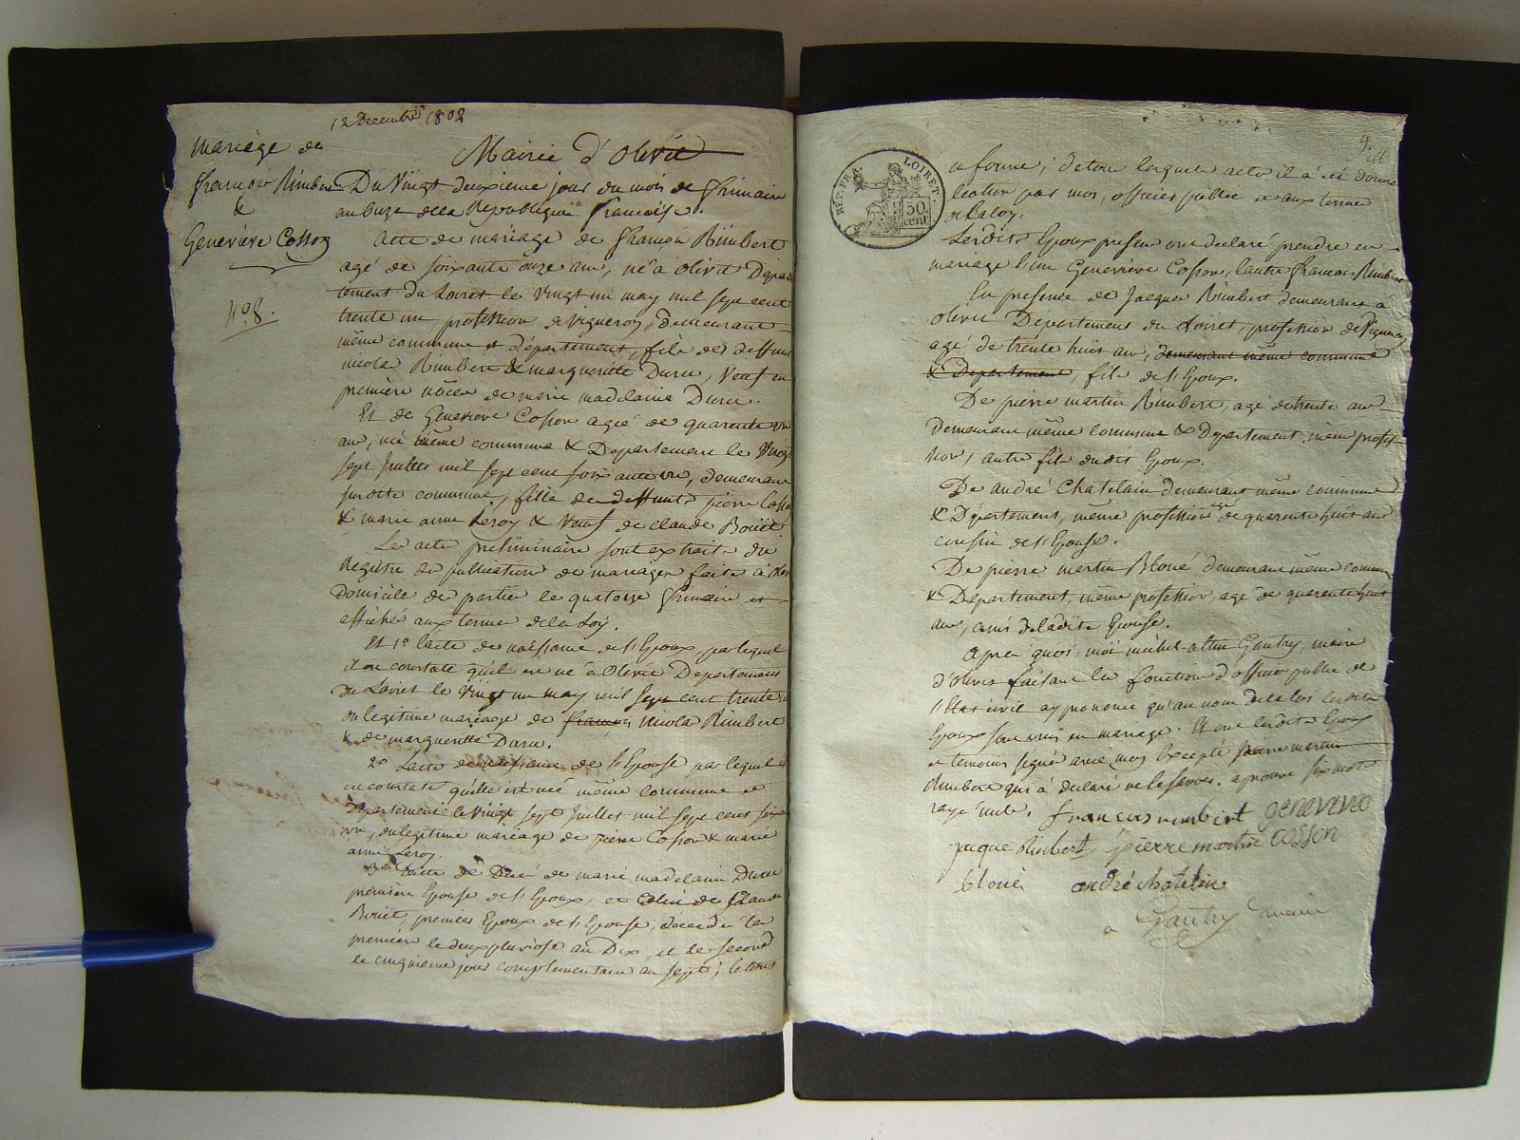 12 Decembre 1802
mariage de
francois Rimbert
&
Genevieve Cosson
n° 8.
Mairie d'Olivet
Du Vingt deuxieme jour du mois de frimaire
an Onze de la République francoise.
Acte de mariage de francois Rimbert
agé de soixante onze ans, né a olivet Dépar
tement du Loiret le Vingt un may mil sept cent
trente un profession de vigneron, demeurant
même commune et département, fils de deffunt
nicola Rimbert & margueritte Daru, Veuf en
première noces de marie madelaine Duru.
Et de Genevieve Cosson agée de quarente un
ans, née même commune & Departement le Vingt
sept Juillet mil sept cent soixante un, demeurant
susditte commune, fille de deffunt pierre Cosson
& marie anne Leroy & Veuf de claude Boüet
Les acte preliminaire sont extrait du
Registre de publication de mariages faite à
domicile de partie le quatorze frimaire et
affiché aux terme de la Loy.
Et 1° l'acte de naissance de l'Epoux, par lequel
il en constate qu'il est né à Olivet Departement
du Loiret le Vingt un may mil sept cent trente
du legitime mariage de nicola Rimbert
& de margueritte Daru.
2° l'acte de naissance de l'Epouse par lequel
en constate qu'elle est née même commune et
Departement le Vingt sept Juillet mil sept cent soix
un, du legitime mariage de pierre Cosson & marie
anne Leroy.
3° l'acte de Decé de marie madelaine Duru
première Epouse de l'Epoux, et celui de Claude
Boüet, premier Epoux de l'Epouse, decedé la
première le deux pluviose an Dix, et le second
le cinquieme jour complementaire an sept; le tous
REP. FRA.
LOIRET
50
cent.
9.
en forme; de tou lesquels acte il à été donné
lecture par moi, officier public et aux terme
de la loy.
Lesdits Epoux present ont declaré prendre en
mariage l'une Genevieve Cosson, l'autre francois Rimbert
En presence de Jacques Rimbert demeurant a
olivet Departement du Loiret, profession de Vigneron
agé de trente huit ans, demeurant même commune
& Departement, fils de l'Epoux.
De pierre martin Rimbert, agé de trente ans
Demeurant même commune & Departement, même profes
sion, autre fils dudit Epoux.
De andré Chatelain demeurant même commune
& Département, même profession agé de quarente huit ans
cousin de l'Epouse.
De pierre martin Bloué demeurant même commun
& Département, même profession, agé de quarente huit
ans, amis de ladite Epouse.
Apres quoi, moi Gautry, maire
d'olivet faisant les fonction d'officier public de
l'état civil ay prononcé qu'au nom de la loi lesdits
Epoux sont unis en mariage. Et ont lesdits Epoux
et temoins signé avec moi Excepté pierre martin
Rimbert qui à declaré ne le savoir. aprouvé six mots
rayé nuls. francois rimbert genevieve
jaque Rimbert pierre martin cosson
bloué andré chatelain
Gautry maire